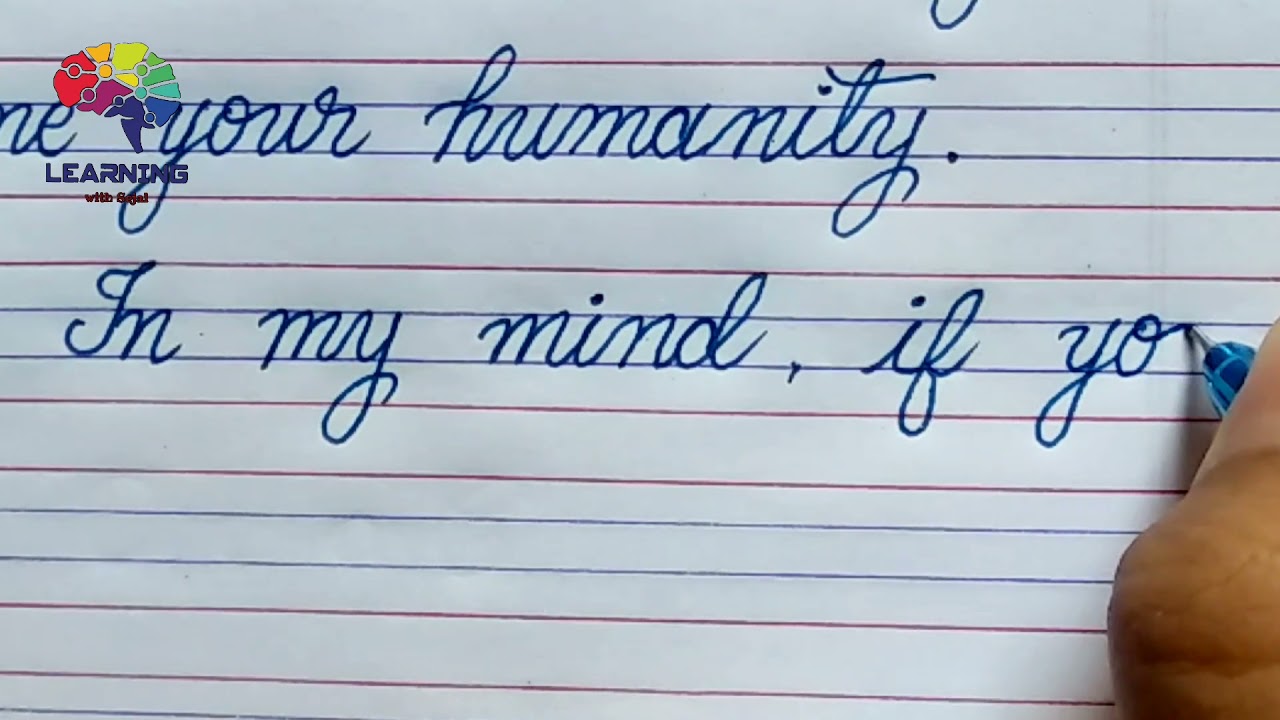 your humanity.
LEARNING
with Sejal
In my mind, if yo